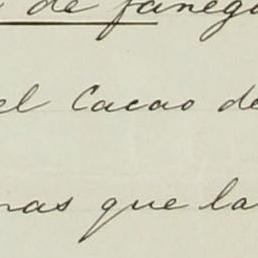 de faneg
el Cacao de
nas que la